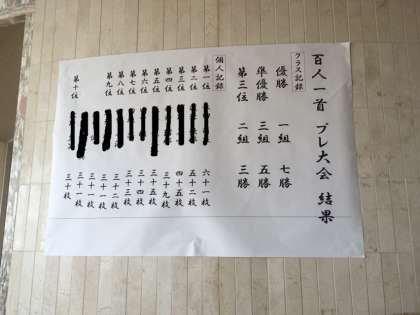 百人一首 プレ大会 結果
クラス記録
優勝 一組 七勝
準優勝 三組 五勝
第三位 二組 三勝
個人記録
第一位 六十一枚
第二位 五十二枚
第三位 四十五枚
第四位 三十九枚
第五位 三十五枚
第六位 三十四枚
第七位 三十三枚
第八位 三十二枚
第九位 三十一枚
三十一枚
三十一枚
第十位 三十枚